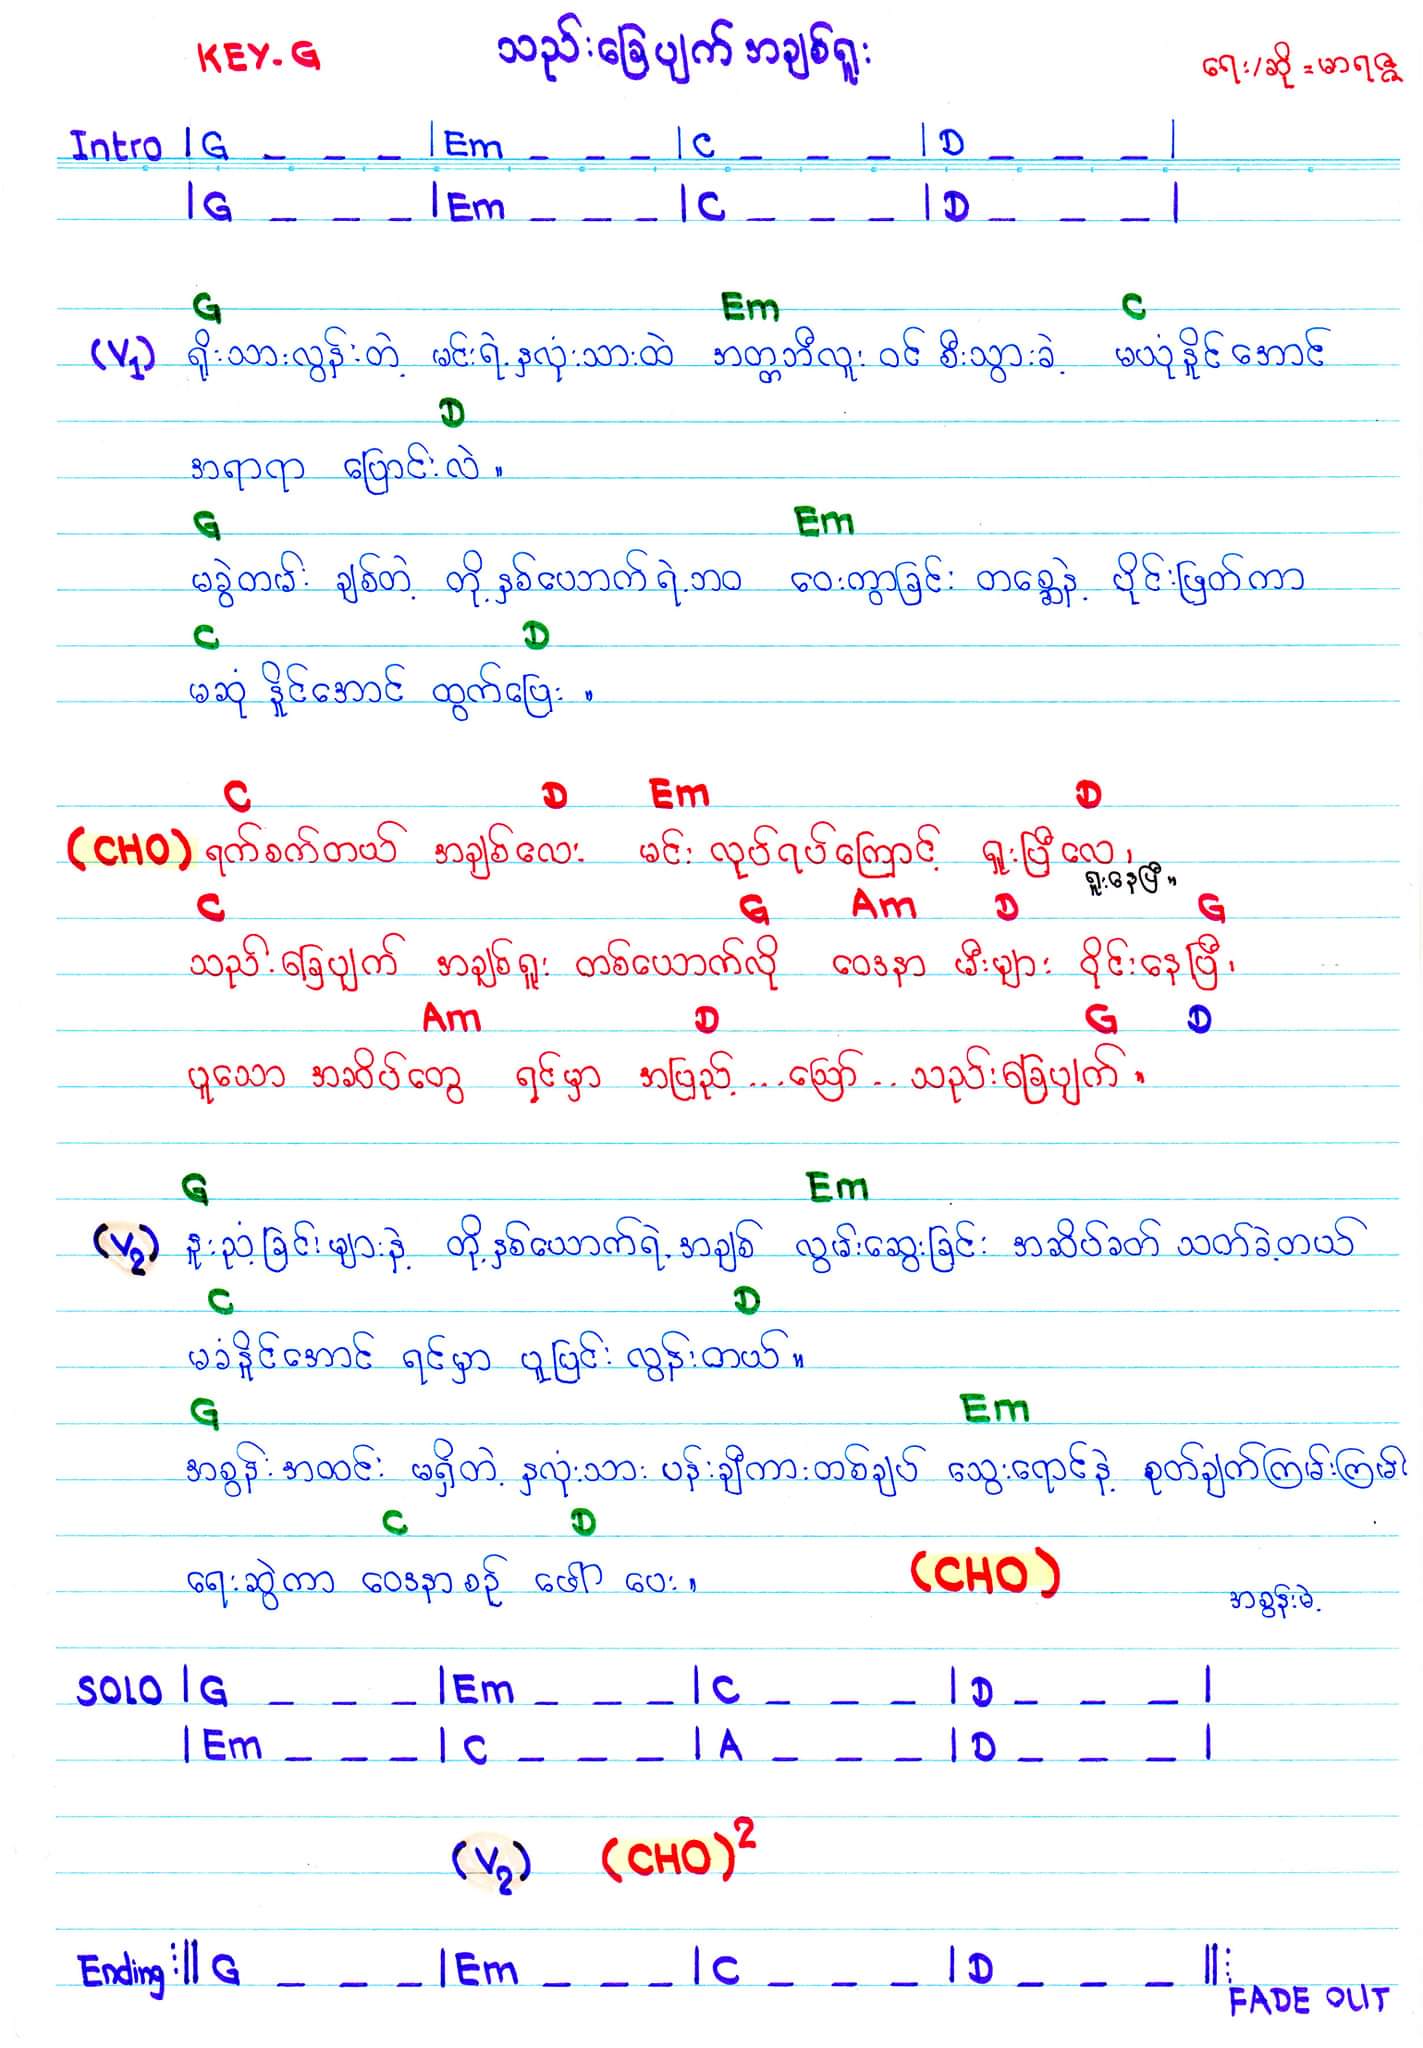 KEY-G သည်းခြေပျက်အချစ်ရူး ရေး/ဆို = မာရဇ္ဇ
Intro |G _ _ _ |Em _ _ _ |C _ _ _ |D _ _ _ |
|G _ _ _ |Em _ _ _ |C _ _ _ |D _ _ _ |
G Em C
(V1) ရိုးသားလွန်းတဲ့ မင်းရဲ့နှလုံးသားထဲ အတ္တဘီလူး ဝင်စီးသွားခဲ့ မယုံနိုင်အောင်
D
အရာရာ ပြောင်းလဲ။
G Em
မခွဲတမ်း ချစ်တဲ့ တို့နှစ်ယောက်ရဲ့ဘဝ ဝေးကွာခြင်း တစ္ဆေနဲ့ ပိုင်းဖြတ်ကာ
C D
မဆုံနိုင်အောင် ထွက်ပြေး။
C D Em D
(CHO) ရက်စက်တယ် အချစ်လေး မင်းလုပ်ရပ်ကြောင့် ရူးပြီလေ၊
ရူးနေပြီ။
C G Am D G
သည်းခြေပျက် အချစ်ရူး တစ်ယောက်လို ဝေဒနာ မီးများ ဝိုင်းနေပြီ၊
Am D G D
ပူသော အဆိပ်တွေ ရင်မှာ အပြည့်...ဪ..သည်းခြေပျက်။
G Em
(V2) နူးညံ့ခြင်းများနဲ့ တို့နှစ်ယောက်ရဲ့အချစ် လွမ်းဆွေးခြင်း အဆိပ်ခတ် သတ်ခဲ့တယ်
C D
မခံနိုင်အောင် ရင်မှာ ပူပြင်းလွန်းတယ်။
G Em
အစွန်းအထင်း မရှိတဲ့ နှလုံးသား ပန်းချီကားတစ်ချပ် သွေးရောင်နဲ့ စုတ်ချက်ကြမ်းကြမ်း
C D
ရေးဆွဲကာ ဝေဒနာစဉ် ဖော် ပေး။ (CHO)
အစွန်းမဲ့
SOLO |G _ _ _ |Em _ _ _ |C _ _ _ |D _ _ _ |
|Em _ _ _ |C _ _ _ |A _ _ _ |D _ _ _ |
(V2) (CHO)²
Ending :||G _ _ _ |Em _ _ _ |C _ _ _ |D _ _ _ ||:
FADE OUT